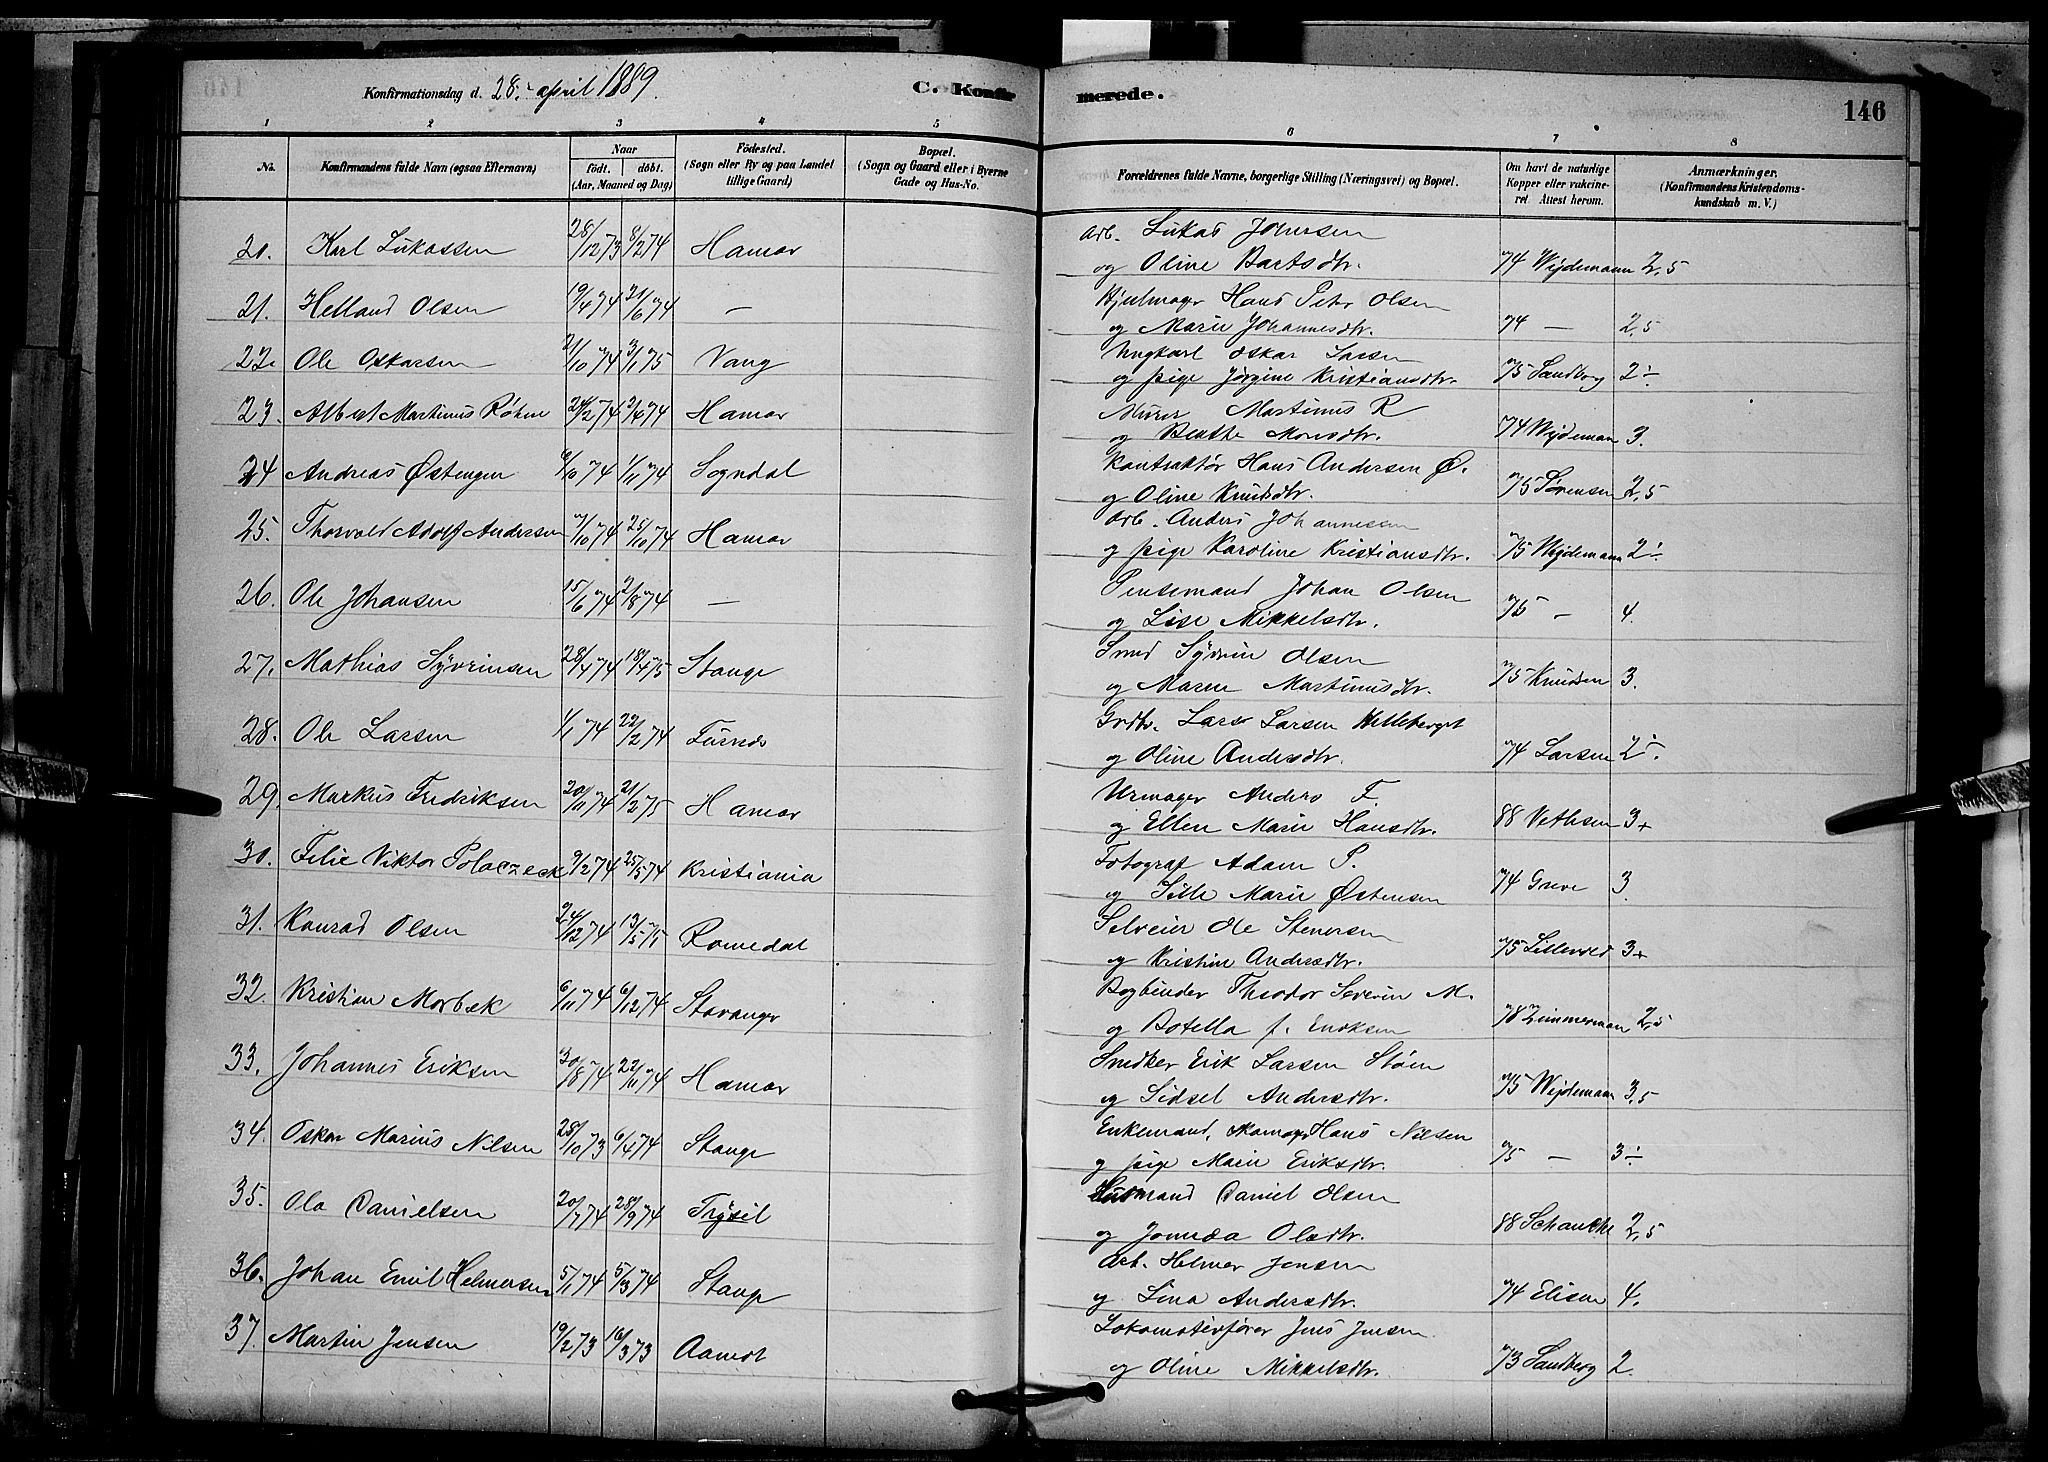 Konfirmationsdag d. 28. april 1889. C. Konfirmerede. 146
1 2 3 4 5 6 7 8
No. Konfirmandens fulde Navn (ogsaa Efternavn) Naar født. døbt. (Aar, Maaned og Dag) Fødested. (Sogn eller By og paa Landet tillige Gaard) Bopæl. (Sogn og Gaard eller i Byerne Gade og Hus-No. Forældrenes fulde Navne, borgerlige Stilling (Næringsvei) og Bopæl. Om havt de naturlige Kopper eller vakcineret Attest herom. Anmærkninger. (Konfirmandens Kristendomskundskab m. V.)
20. Karl Lukassen 28/12 73 8/2 74 Hamar Arb. Lukas Johnsen
og Oline Bartsdtr. 74 Wejdemann 2,5
21. Helland Olsen 19/4 74 21/6 74 — Hjulmager Hans Peter Olsen
og Marie Johannesdtr. 74 — 2,5
22. Ole Oskarsen 21/10 74 3/1 75 Vang Ungkarl Oskar Larsen
og pige Jørgine Kristiansdtr. 75 Sandberg 2÷
23. Albert Martinus Røhne 24/2 74 2/4 74 Hamar Murer Martinus R
og Benthe Monsdtr. 74 Wejdeman 3.
24 Andreas Østengen 9/10 74 1/11 74 Sogndal Kontraktør Hans Andersen Ø.
og Oline Knudsdtr. 75 Sørensen 2,5
25. Thorvald Adolf Andersen 7/10 74 25/10 74 Hamar Arb. Anders Johannessen
og pige Karoline Kristiansdtr. 75 Wejdemann 2÷
26. Ole Johansen 15/6 74 2/8 74 — Pensemand Johan Olsen
og Lise Mikkelsdtr. 75 — 4.
27. Mathias Syvrinsen 28/4 74 18/4 75 Stange Smed Syvrin Olsen
og Maren Martinusdtr. 75 Knudsen 3.
28. Ole Larsen 1/1 74 22/2 74 Furnes Grdbr. Lars Larsen Helleberget
og Oline Andersdtr. 74 Larsen 2÷
29. Markus Fredriksen 20/11 74 21/2 75 Hamar Urmager Anders F.
og Ellen Marie Hansdtr. 88 Vethsen 3+
30. Felix Viktor Polaczeck 9/2 74 25/5 74 Kristiania Fotograf Adam P.
og Sille Marie Østensen 74 Greve 3
31. Konrad Olsen 24/12 74 13/5 75 Romedal Selveier Ole Stenersen
og Kristine Andersdtr. 75 Lillevold 3+
32. Kristian Morbek 6/11 74 6/12 74 Stavanger Bogbinder Theodor Severin M.
og Botella f. Eriksen 78 Zimmerman 2,5
33. Johannes Eriksen 30/8 74 22/11 74 Hamar Snedker Erik Larsen Støen
og Sidsel Andersdtr. 75 Wejdemann 3,5
34. Oskar Marius Nilsen 28/10 73 6/4 74 Stange Enkemand, skomager Hans Nilsen
og pige Marie Eriksdtr. 75 — 3÷
35. Ola Danielsen 20/7 74 28/9 74 Trysil Husmand Daniel Olsen
og Olsdtr. 88 Schancke 2,5
36. Johan Emil Helmersen 5/1 74 5/3 74 Stange Arb. Helmer Jensen
og Lina Andersdtr. 74 4.
37. Martin Jensen 19/2 73 16/3 73 Aamot Lokomotivfører Jens Jensen
og Oline Mikkelsdtr. 73 Sandberg 2.